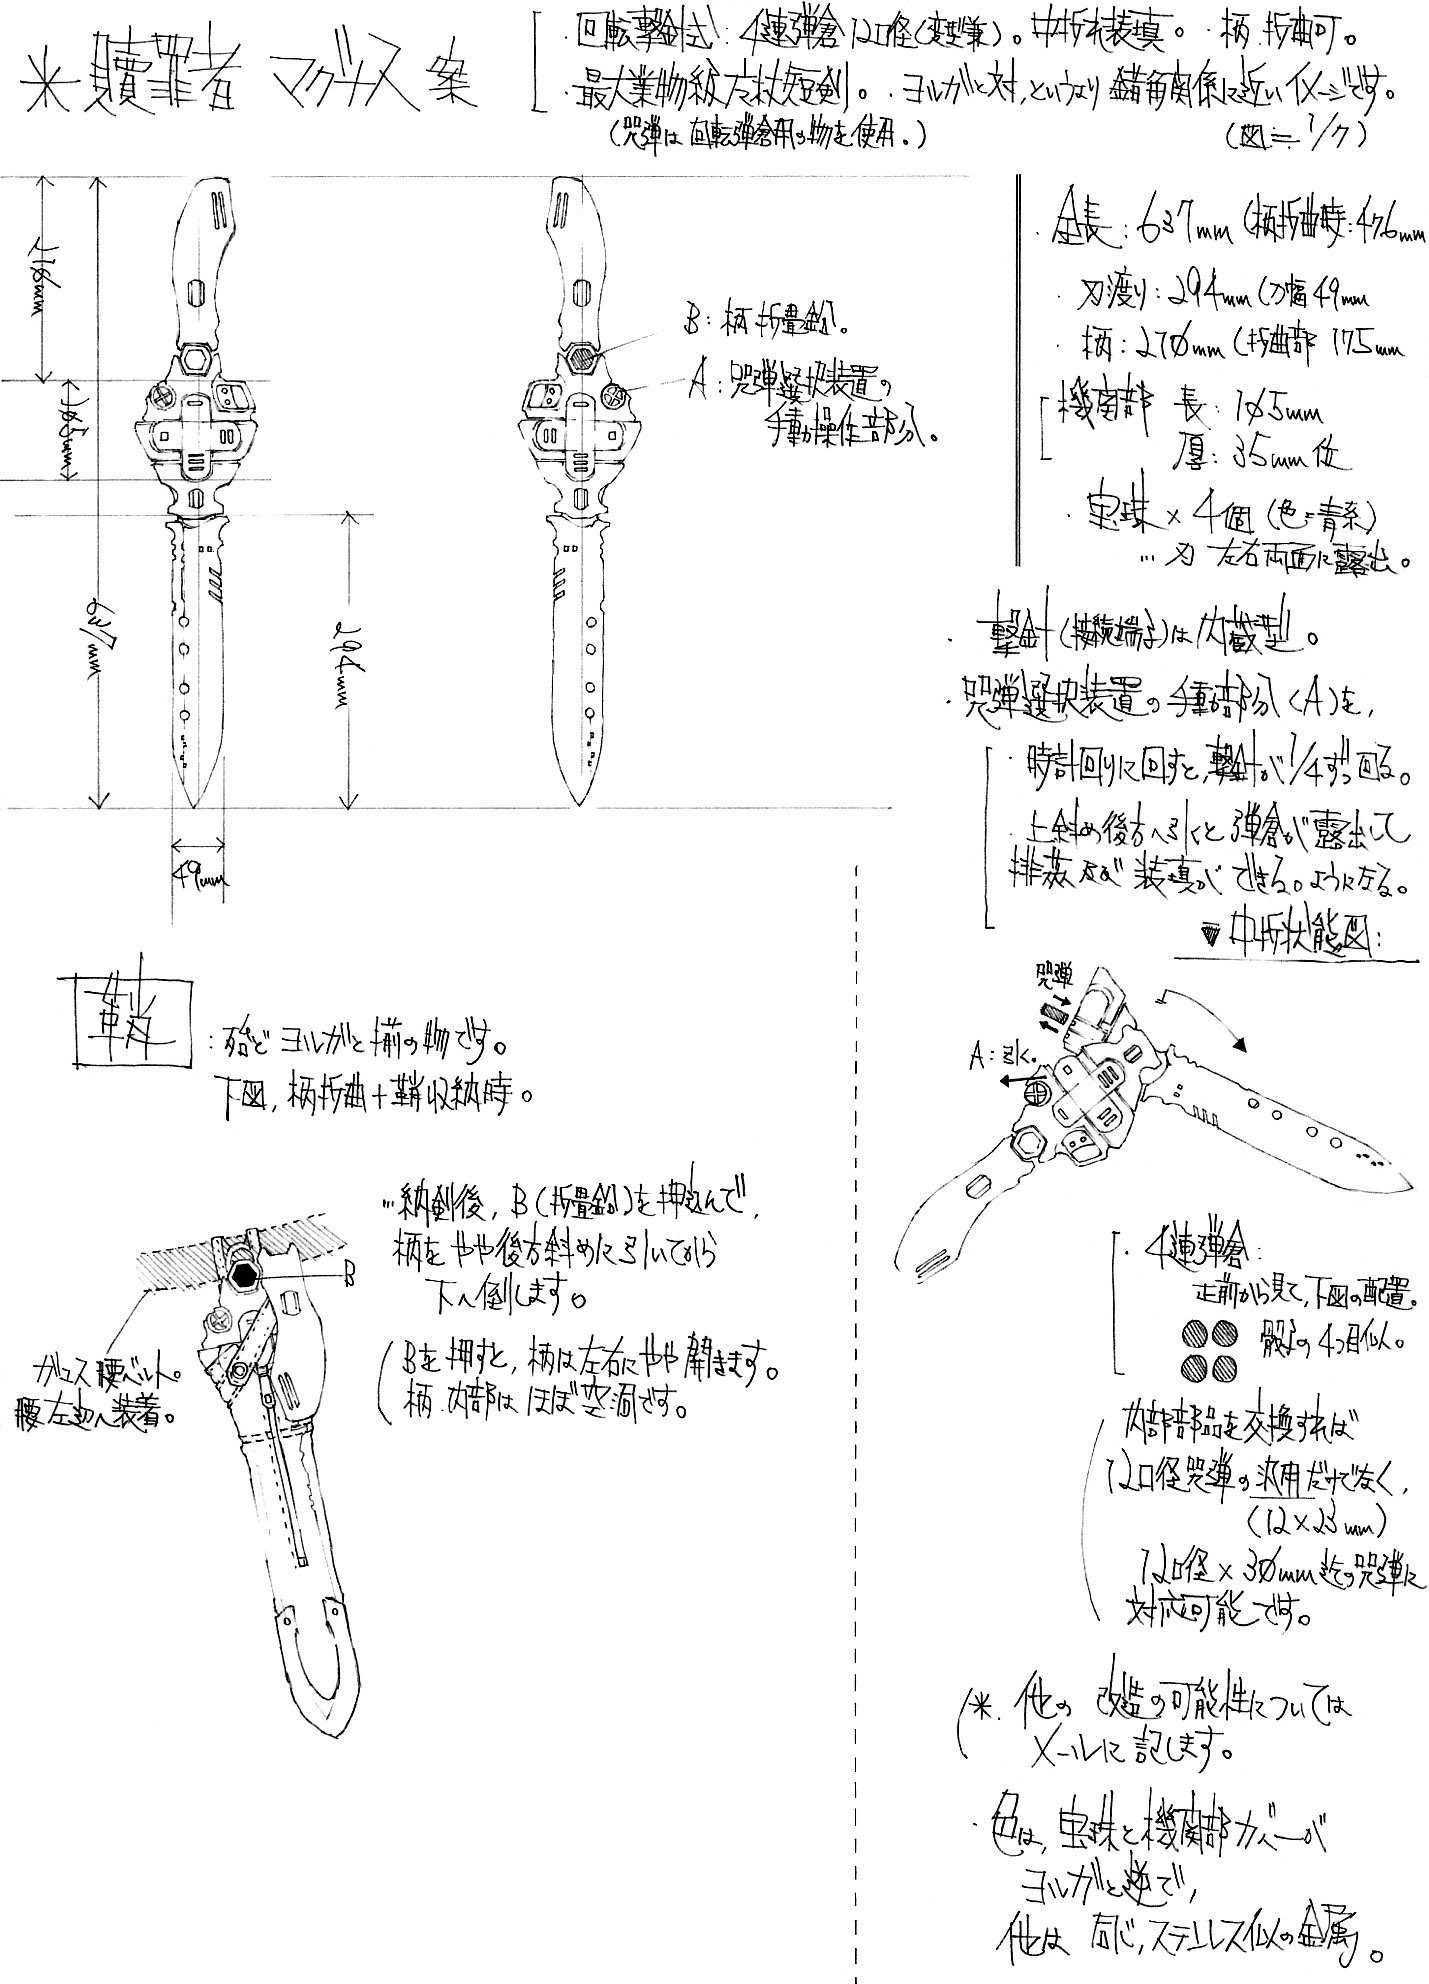 ※贖罪者マグナス案
・回転撃針式:4連弾倉12口径(変型兼)。中折れ装填。・柄 折曲可。
・最大業物級 左杖短剣。・ヨルガと対,というより 鎬角関係に近いイメージです。
(咒弾は回転弾倉用の物を使用。)
(図≒1/7)
216mm
105mm
637mm
294mm
49mm
B:柄 折畳釦。
A:咒弾選択装置の
手動操作部分。
・全長:637mm(柄折曲時:476mm
・刃渡り:294mm(刀幅49mm
・柄:270mm(折曲部 175mm
機関部 長:105mm
厚:35mm位
・宝珠×4個(色=青系)
…刃 左右両面に露出。
・撃針(接続端子)は内蔵型。
・咒弾選択装置の手動部分(A)を,
・時計回りに回すと,撃針が1/4ずつ回る。
・上斜め後方へ引くと弾倉が露出して
排莢及び装填ができる。ようになる。
▼中折状態図:
咒弾
A:引く。
鞘
:殆どヨルガと揃の物です。
下図,柄折曲+鞘収納時。
…納剣後,B(折畳釦)を押込んで,
柄をやや後方斜めに引いてから
下へ倒します。
(Bを押すと,柄は左右にやや開きます。
柄 内部はほぼ空洞です。
B
ガユス腰ベルト。
腰左辺へ装着。
・4連弾倉:
正前から見て,下図の配置。
骰子の4つ目似。
内部部品を交換すれば
12口径咒弾の汎用だけでなく,
(12×23mm)
12口径×30mm迄の咒弾に
対応可能です。
(※.他の改造の可能性については
メールに記します。
・色は,宝珠と機関部カバーが
ヨルガと逆で,
他は同じ,ステンレス似の金属。